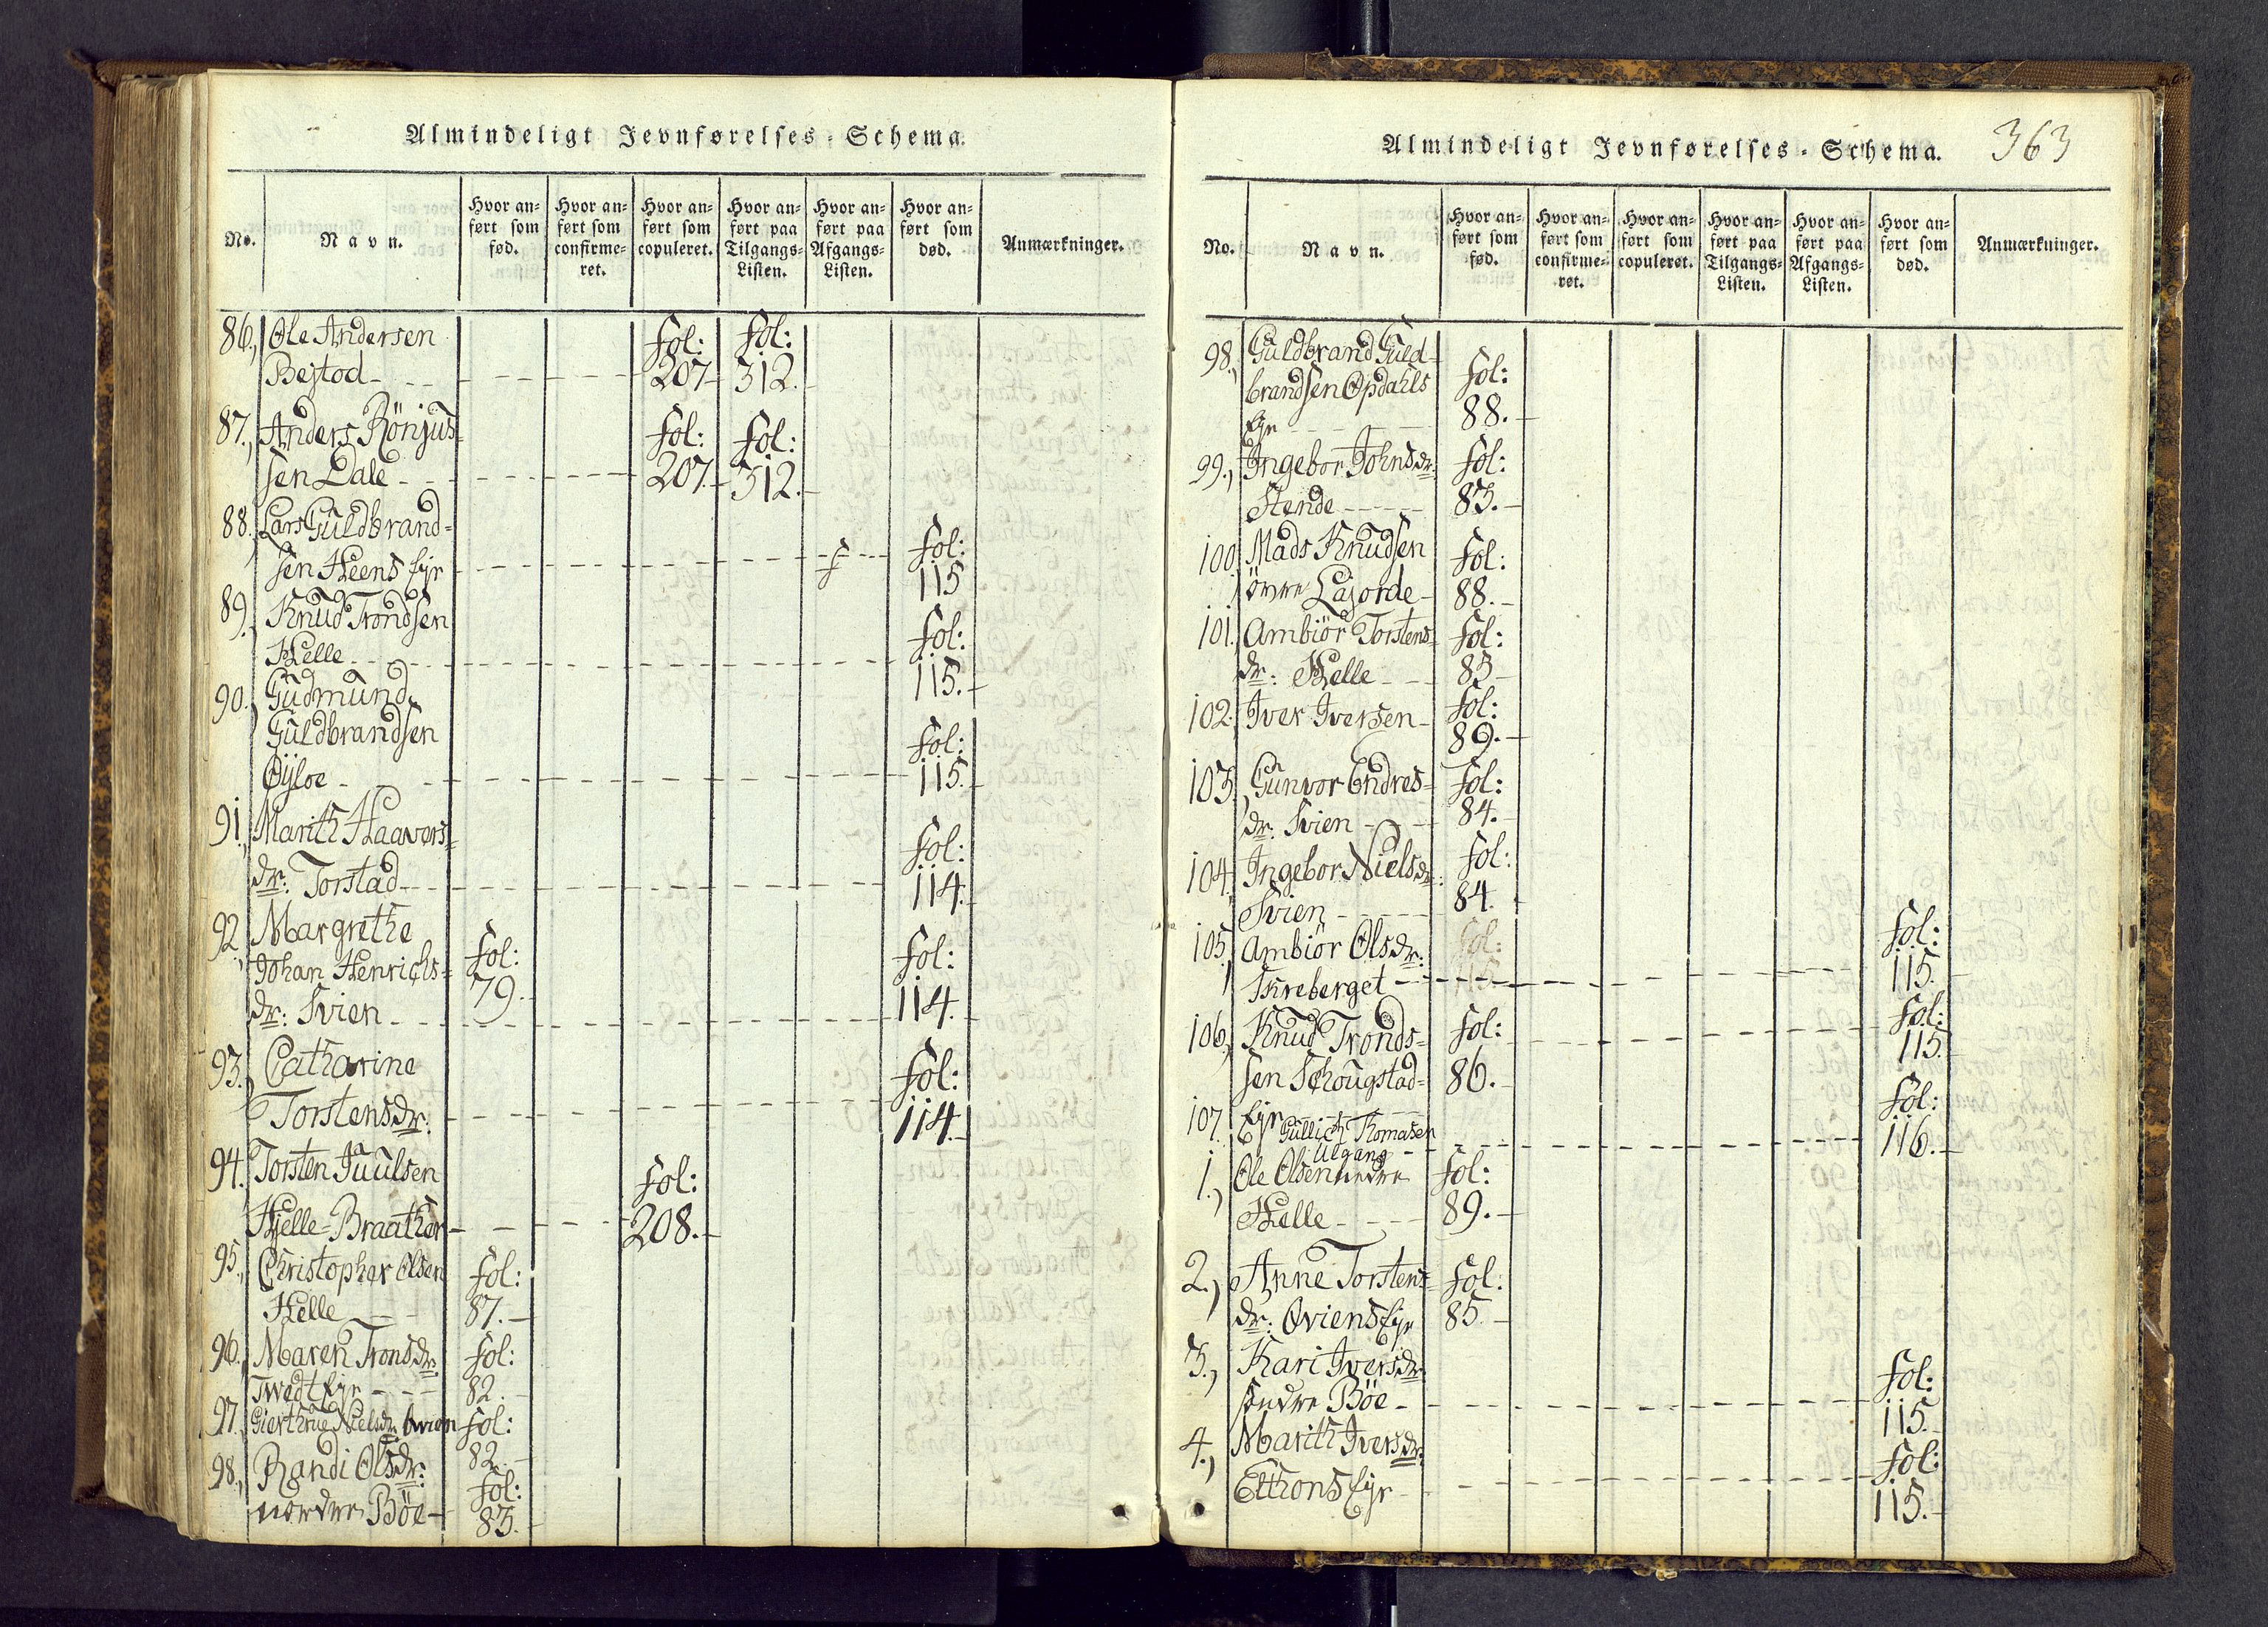 Almindeligt Jevnførelses-Schema.
No.
Navn.
Hvor an-
ført som
fød.
Hvor an-
ført som
confirme-
ret.
Hvor an-
ført som
copuleret.
Hvor an-
ført paa
Tilgangs-
Listen.
Hvor an-
ført paa
Afgangs-
Listen.
Hvor an-
ført som
død.
Anmærkninger.
86., Ole Andersen fol: fol:
Bejtod - - 207- 312.-
87., Anders Rönjus- fol: fol:
sen Dale - - 207.- 312.-
88., Lars Guldbrand- fol:
sen Heens Eje - - 115
89., Knud Trondsen fol:
Helle - - 115.-
90., Gudmund
Guldbrandsen fol:
Öÿloe - - 115.-
91., Marith Haavers- fol:
dr: Torstad - - 114.
92., Margrethe fol: fol:
Johan Henrichs- 79.-
dr: Svien - - 114.-
93., Catharine fol:
Torstensdr: - - 114.-
94., Torsten Juulsen fol:
Hjelle=Braathen - - 208.-
95., Christopher Olsen fol:
Helle - - 87.-
96., Maren Tronsdr: fol:
Twedt Eje - - 82.-
97., Gierthrue Nielsdr: Qvien fol:
82.-
98., Randi Olsdr: fol:
nordre Böe - 83.-
Almindeligt Jevnførelses-Schema. 363
No.
Navn.
Hvor an-
ført som
fød.
Hvor an-
ført som
confirme-
ret.
Hvor an-
ført som
copuleret.
Hvor an-
ført paa
Tilgangs-
Listen.
Hvor an-
ført paa
Afgangs-
Listen.
Hvor an-
ført som
død.
Anmærkninger.
98., Guldbrand Guld-
brandsen Opdahls fol:
Eje - - 88.-
99., Ingebor Johnsdr: fol:
Stende - - 83.-
100., Mads Knudsen fol:
övre Lajorde - 88.-
101., Ambiör Torstens- fol:
dr: Helle - - 83-
102., Iver Iversen - fol:
89.-
103., Gunvor Endres- fol:
dr: Svien - - 84.-
104., Ingebor Nielsdr: fol:
Svien - - 84.
105., Ambiör Olsdr: fol: fol:
Skreberget - - 115 115.
106., Knud Tronds- fol: fol:
sen Schougstad- 86.- 115.
107., Eje Gullich Thomasen fol:
Ulgang - - 116.-
1., Ole Olsen nedre fol:
Helle - - 89.-
2., Anne Torstens- fol:
dr: Qviens Eje 85.-
3., Kari Iversdr: fol:
söndre Böe - - 115.-
4., Marith Iversdr: fol:
Elthons Eje - - 115.-